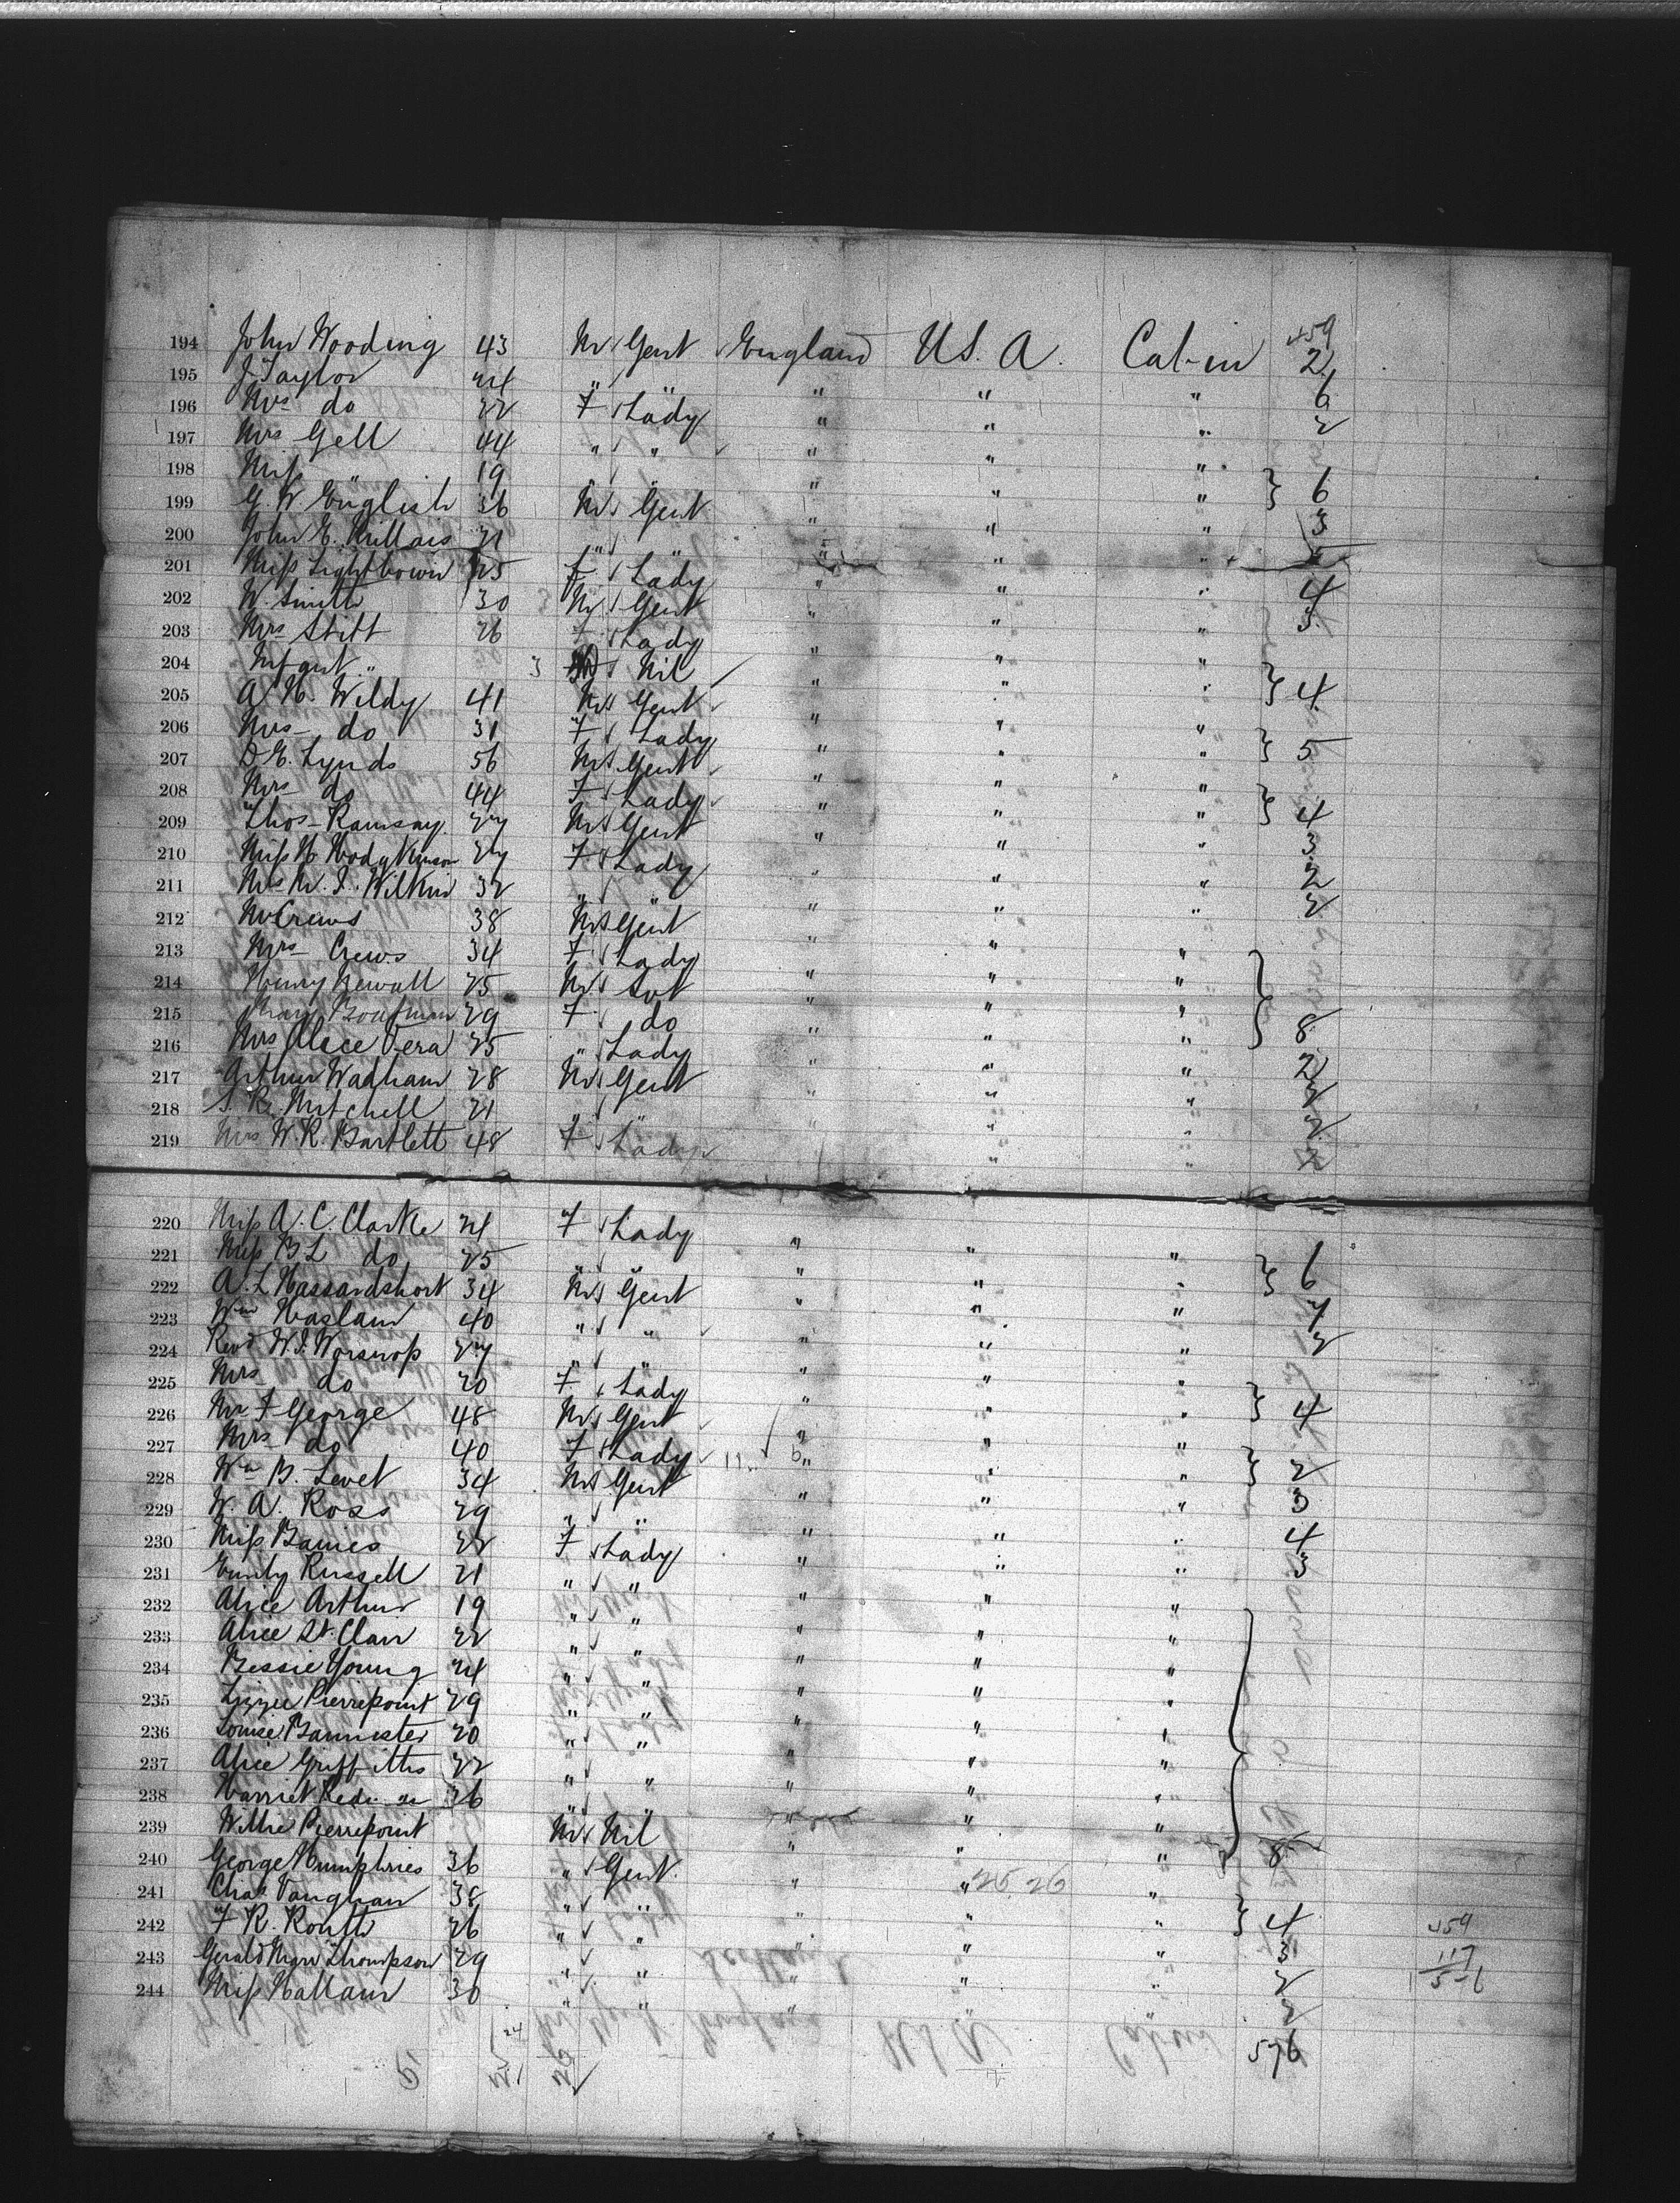 459
194 John Wooding 43 M Gent England U.S.A. Cabin 2
195 J Taylor 24 " " " " " 6
196 Mrs do 22 F Lady " " " 2
197 Mrs Gell 44 " " " " "
198 Miss " 19 " " " " " } 6
199 G. W. English 36 M Gent " " " 3
200 John E. Millais 21 " " " " "
201 Miss Lightbown 25 F Lady " " " 4
202 W. Smith 30 M Gent " " " 3
203 Mrs Stitt 26 F Lady " " "
204 Infant " 3 Nil " " " } 4
205 A. H. Wildy 41 M Gent " " "
206 Mrs do 31 F Lady " " " } 5
207 D E. Lynds 56 M Gent " " "
208 Mrs do 44 F Lady " " " } 4
209 Thos Ramsay 27 M Gent " " " 3
210 Miss H Hodgkinson 27 F Lady " " " 2
211 Mrs W. J. Wilkin 32 " " " " " 2
212 Mr Crews 38 M Gent " " "
213 Mrs Crews 34 F Lady " " "
214 Henry Newall 25 M Svt " " "
215 Mary 29 F do " " " } 8
216 Mrs Alice Vera 25 " Lady " " " 2
217 Arthur Wadham 28 M Gent " " " 2
218 S. R. Mitchell 21 " " " " " 2
219 Mrs W. R. Bartlett 48 F Lady " " " 2
220 Miss A. C. Clarke 24 F Lady " " "
221 Miss B L do 25 " " " " " } 6
222 A. L Hassardshort 34 M Gent " " " 7
223 Wm Haslam 40 " " " " " 2
224 Revd W. J. Worsnop 27 " " " " "
225 Mrs do 20 F Lady " " " } 4
226 Mr F George 48 M Gent " " "
227 Mrs do 40 F Lady 11 6 " " " } 2
228 Wm B. Levet 34 M Gent " " " 3
229 W. A. Ross 29 " " " " " 4
230 Miss Baines 22 F Lady " " " 3
231 Emily Russell 21 " " " " "
232 Alice Arthur 19 " " " " "
233 Alice St. Clair 22 " " " " "
234 Bessie Young 24 " " " " "
235 Lizzie Pierrepoint 29 " " " " "
236 Louise Bannister 20 " " " " "
237 Alice Griffiths 22 " " " " "
238 Harriet 36 " " " " "
239 Willie Pierrepoint M Nil " " " } 8
240 George Humphries 36 " Gent " " "
241 Chas Vaughan 38 " " " " 26 26 " } 4
242 F R. Routh 26 " " " " " 3 459
243 Gerald Thompson 29 " " " " " 2 117
244 Miss Hallam 30 " " " " " 2 576
576